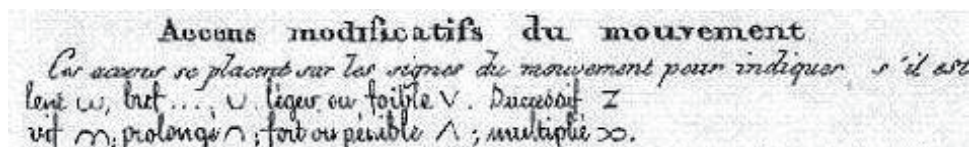 Accens modificatifs du mouvement
Ces accens se placent sur les signes du mouvement pour indiquer, s'il est
lent ω, bref .... ∪. léger ou foible ∨. Successif Z
vif m, prolongé ∩; fort ou pénible ∧; multiplié ∞.